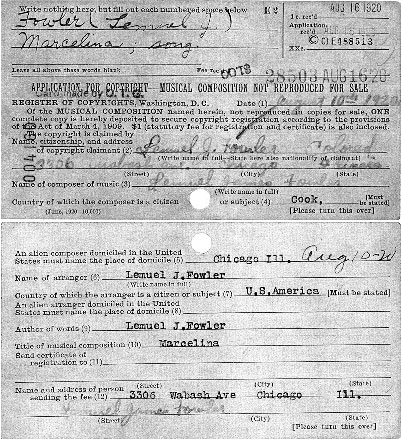 Write nothing here, but fill out each numbered space below
E 2
1 c. rec'd AUG 16 1920
Fowler (Lemuel J.)
Application, rec'd AUG 16 1920
Marcelina; song
XXc. ©CIE488513
Leave all above these words blank.
Fee rec'd
28503 AUG 16 20
APPLICATION FOR COPYRIGHT—MUSICAL COMPOSITION NOT REPRODUCED FOR SALE
REGISTER OF COPYRIGHTS, Washington, D. C. Date (1) August 10th
OF THE MUSICAL COMPOSITION named herein, not reproduced in copies for sale, ONE
complete copy is hereby deposited to secure copyright registration according to the provisions
of the Act of March 4, 1909. $1 (statutory fee for registration and certificate) is also inclosed.
The copyright is claimed by
Name, citizenship, and address
of copyright claimant (2) Lemuel J. Fowler
(Write name in full—State here also nationality of claimant)
(Street) (City) (State)
Name of composer of music (3) Lemuel
(Write name in full)
Country of which the composer is a citizen or subject (4) Cook, [Must be stated]
(Form, 1920—10,000)
[Please turn this over]
An alien composer domiciled in the United
States must name the place of domicile (5) Chicago Ill. Aug 10-20
Name of arranger (6) Lemuel J.Fowler
(Write name in full)
Country of which the arranger is a citizen or subject (7) U.S.America [Must be stated]
An alien arranger domiciled in the United
States must name the place of domicile (8)
Author of words (9) Lemuel J.Fowler
Title of musical composition (10) Marcelina
Send certificate of
registration to (11)
(Street) (City) (State)
Name and address of person
sending the fee (12) 3306 Wabash Ave Chicago Ill.
Lemuel James Fowler
(Street) (City) (State)
[Please turn this over]